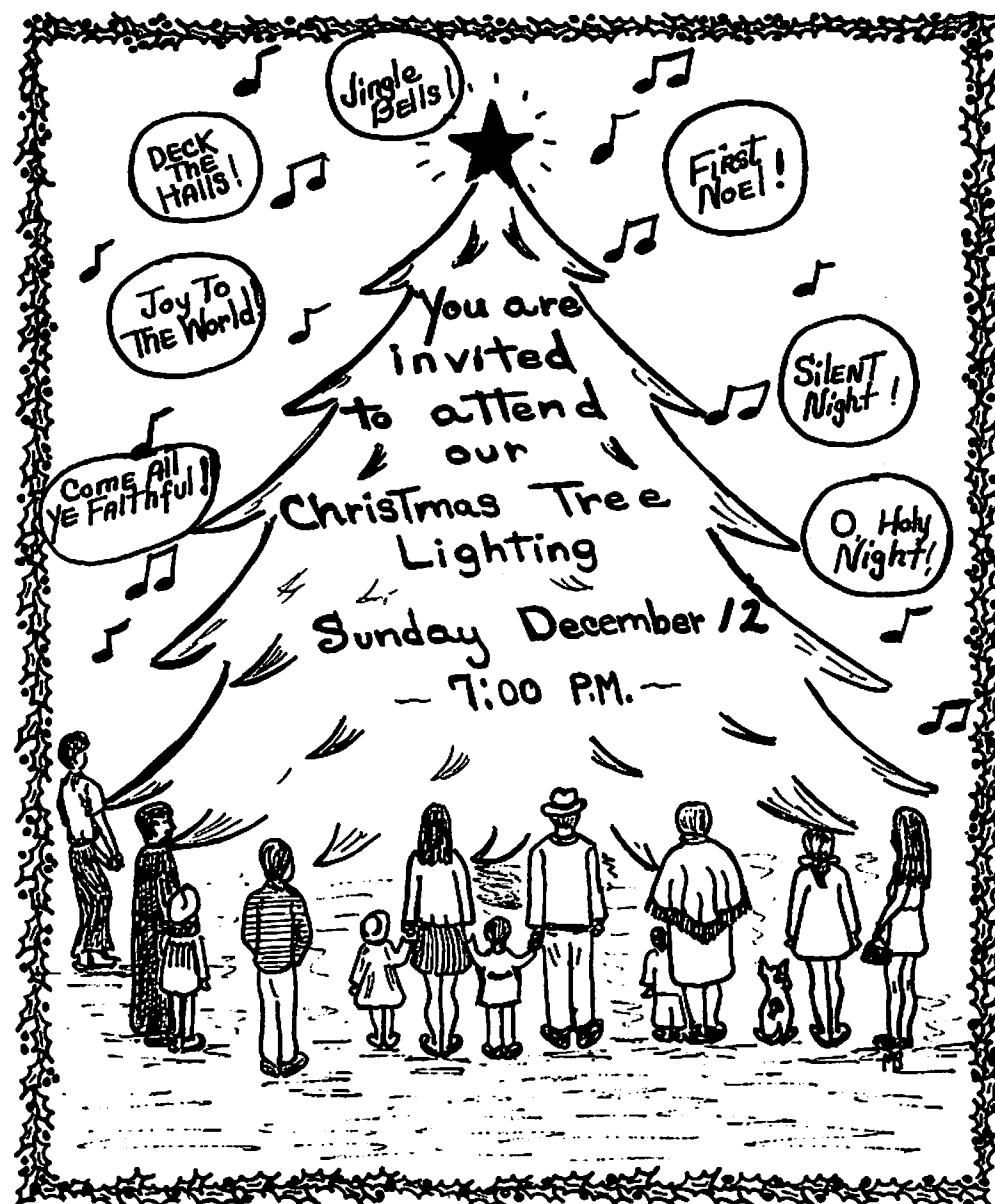 Jingle
Bells!
DECK
The
HAlls!
FiRST
NOEl!
Joy To
The World!
SilENT
Night!
Come All
YE FAiThful!
O, Holy
Night!
You are
invited
to attend
our
Christmas Tree
Lighting
Sunday December 12
— 7:00 P.M. —